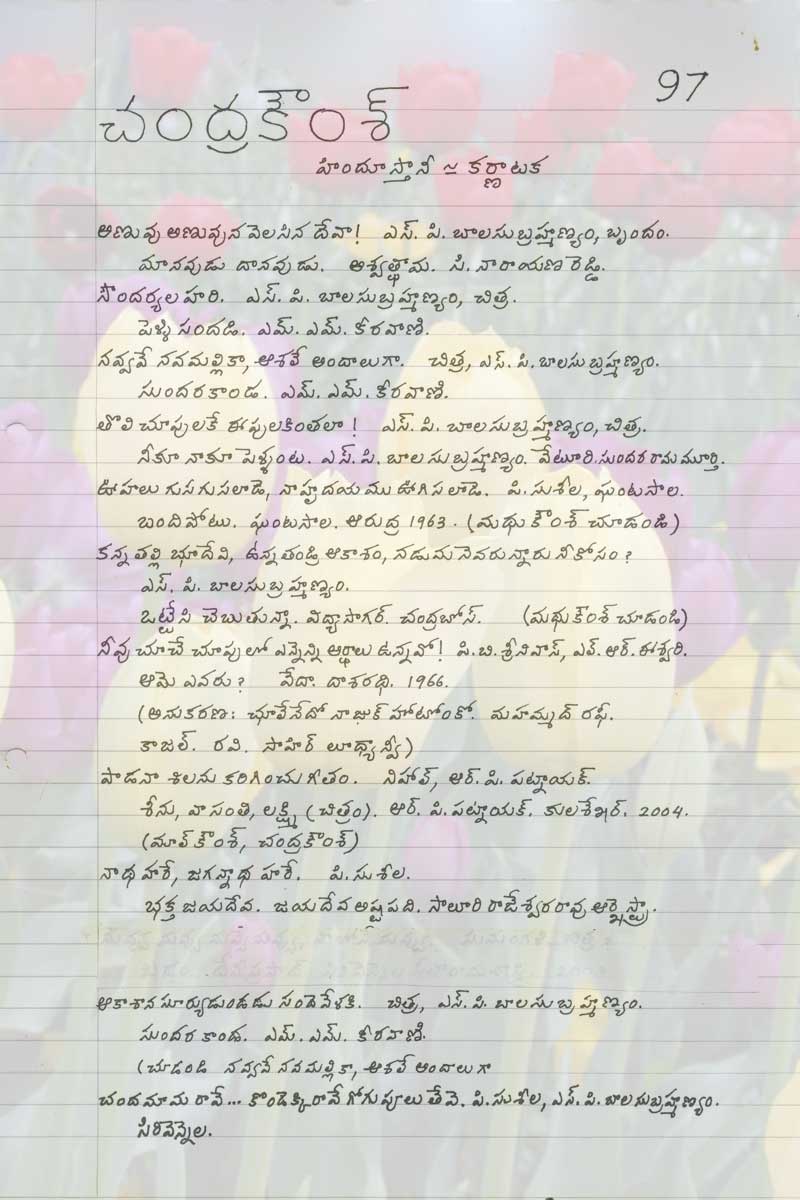 97
చంద్రకౌంశ్
హిందూస్తానీ ≃ కర్ణాటక
అణువు అణువున వెలసిన దేవా! ఎస్. పి. బాలసుబ్రహ్మణ్యం, బృందం.
మానవుడు దానవుడు. అశ్వత్థామ. సి. నారాయణ రెడ్డి.
సౌందర్యలహరి. ఎస్. పి. బాలసుబ్రహ్మణ్యం, చిత్ర.
పెళ్ళి సందడి. ఎమ్. ఎమ్. కీరవాణి.
నవ్వవే నవమల్లికా, ఆశలే అందాలుగా. చిత్ర, ఎస్. పి. బాలసుబ్రహ్మణ్యం.
సుందరకాండ. ఎమ్. ఎమ్. కీరవాణి.
తొలి చూపులకే ఈపులకింతలా! ఎస్. పి. బాలసుబ్రహ్మణ్యం, చిత్ర.
నీకూ నాకూ పెళ్ళంట. ఎస్. పి. బాలసుబ్రహ్మణ్యం. వేటూరి.సుందరరామమూర్తి.
ఊహలు గుసగుసలాడె, నాహృదయము ఊగిసలాడె. పి.సుశీల, ఘంటసాల.
బందిపోటు. ఘంటసాల. ఆరుద్ర 1963. (మధుకౌంశ్ చూడండి)
కన్నతల్లి భూదేవి, ఉన్నతండ్రి ఆకాశం, నడుమనెవరున్నారు నీకోసం?
ఎస్. పి. బాలసుబ్రహ్మణ్యం.
ఒట్టేసి చెబుతున్నా. విద్యాసాగర్. చంద్రబోస్. (మధుకౌంశ్ చూడండి)
నీవు చూచే చూపులో ఎన్నెన్ని అర్థాలు ఉన్నవో! పి.బి.శ్రీనివాస్, ఎల్. ఆర్. ఈశ్వరి.
ఆమె ఎవరు? వేదా. దాశరథి. 1966.
(అనుకరణ: ఛూలేనేదో నాజుక్ హోటోంకో. మహమ్మద్ రఫీ.
కాజల్. రవి. సాహిర్ లూధ్యాన్వీ)
పాడనా శిలను కరిగించు గీతం. నిహాల్, ఆర్. పి. పట్నాయక్.
శీను, వాసంతి, లక్ష్మి (చిత్రం). ఆర్. పి. పట్నాయక్. కులశేఖర్. 2004.
(మాల్ కౌంశ్, చంద్రకౌంశ్)
నాథ హరే, జగన్నాథ హరే. పి.సుశీల.
భక్త జయదేవ. జయదేవ అష్టపది. సాలూరి రాజేశ్వరరావు ఆర్కెస్ట్రా.
ఆకాశాన సూర్యుడుండడు సందెవేళకి. చిత్ర, ఎస్. పి. బాలసుబ్రహ్మణ్యం.
సుందర కాండ. ఎమ్. ఎమ్. కీరవాణి.
(చూడండి నవ్వవే నవమల్లికా, ఆశలే అందాలుగా
చందమామ రావే... కొండెక్కిరావే గోగుపూలు తేవే. పి.సుశీల, ఎస్. పి. బాలసుబ్రహ్మణ్యం.
సిరివెన్నెల.